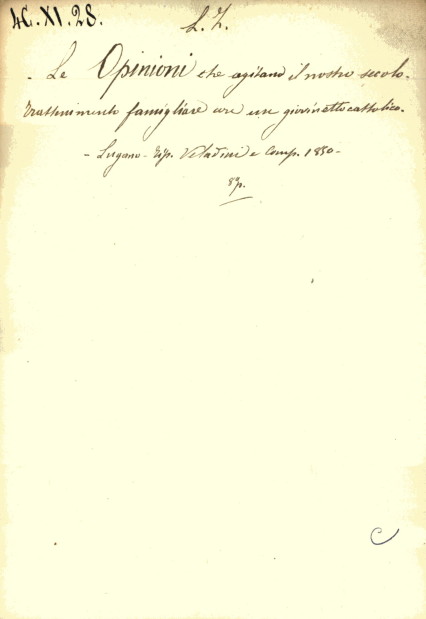 4C.XI.28.
L. Z.
- Le Opinioni che agitano il nostro secolo.
Trattenimento famigliare con un giovinetto cattolico.
- Lugano - Tip. Veladini e Comp. 1850 -
8º p.
C